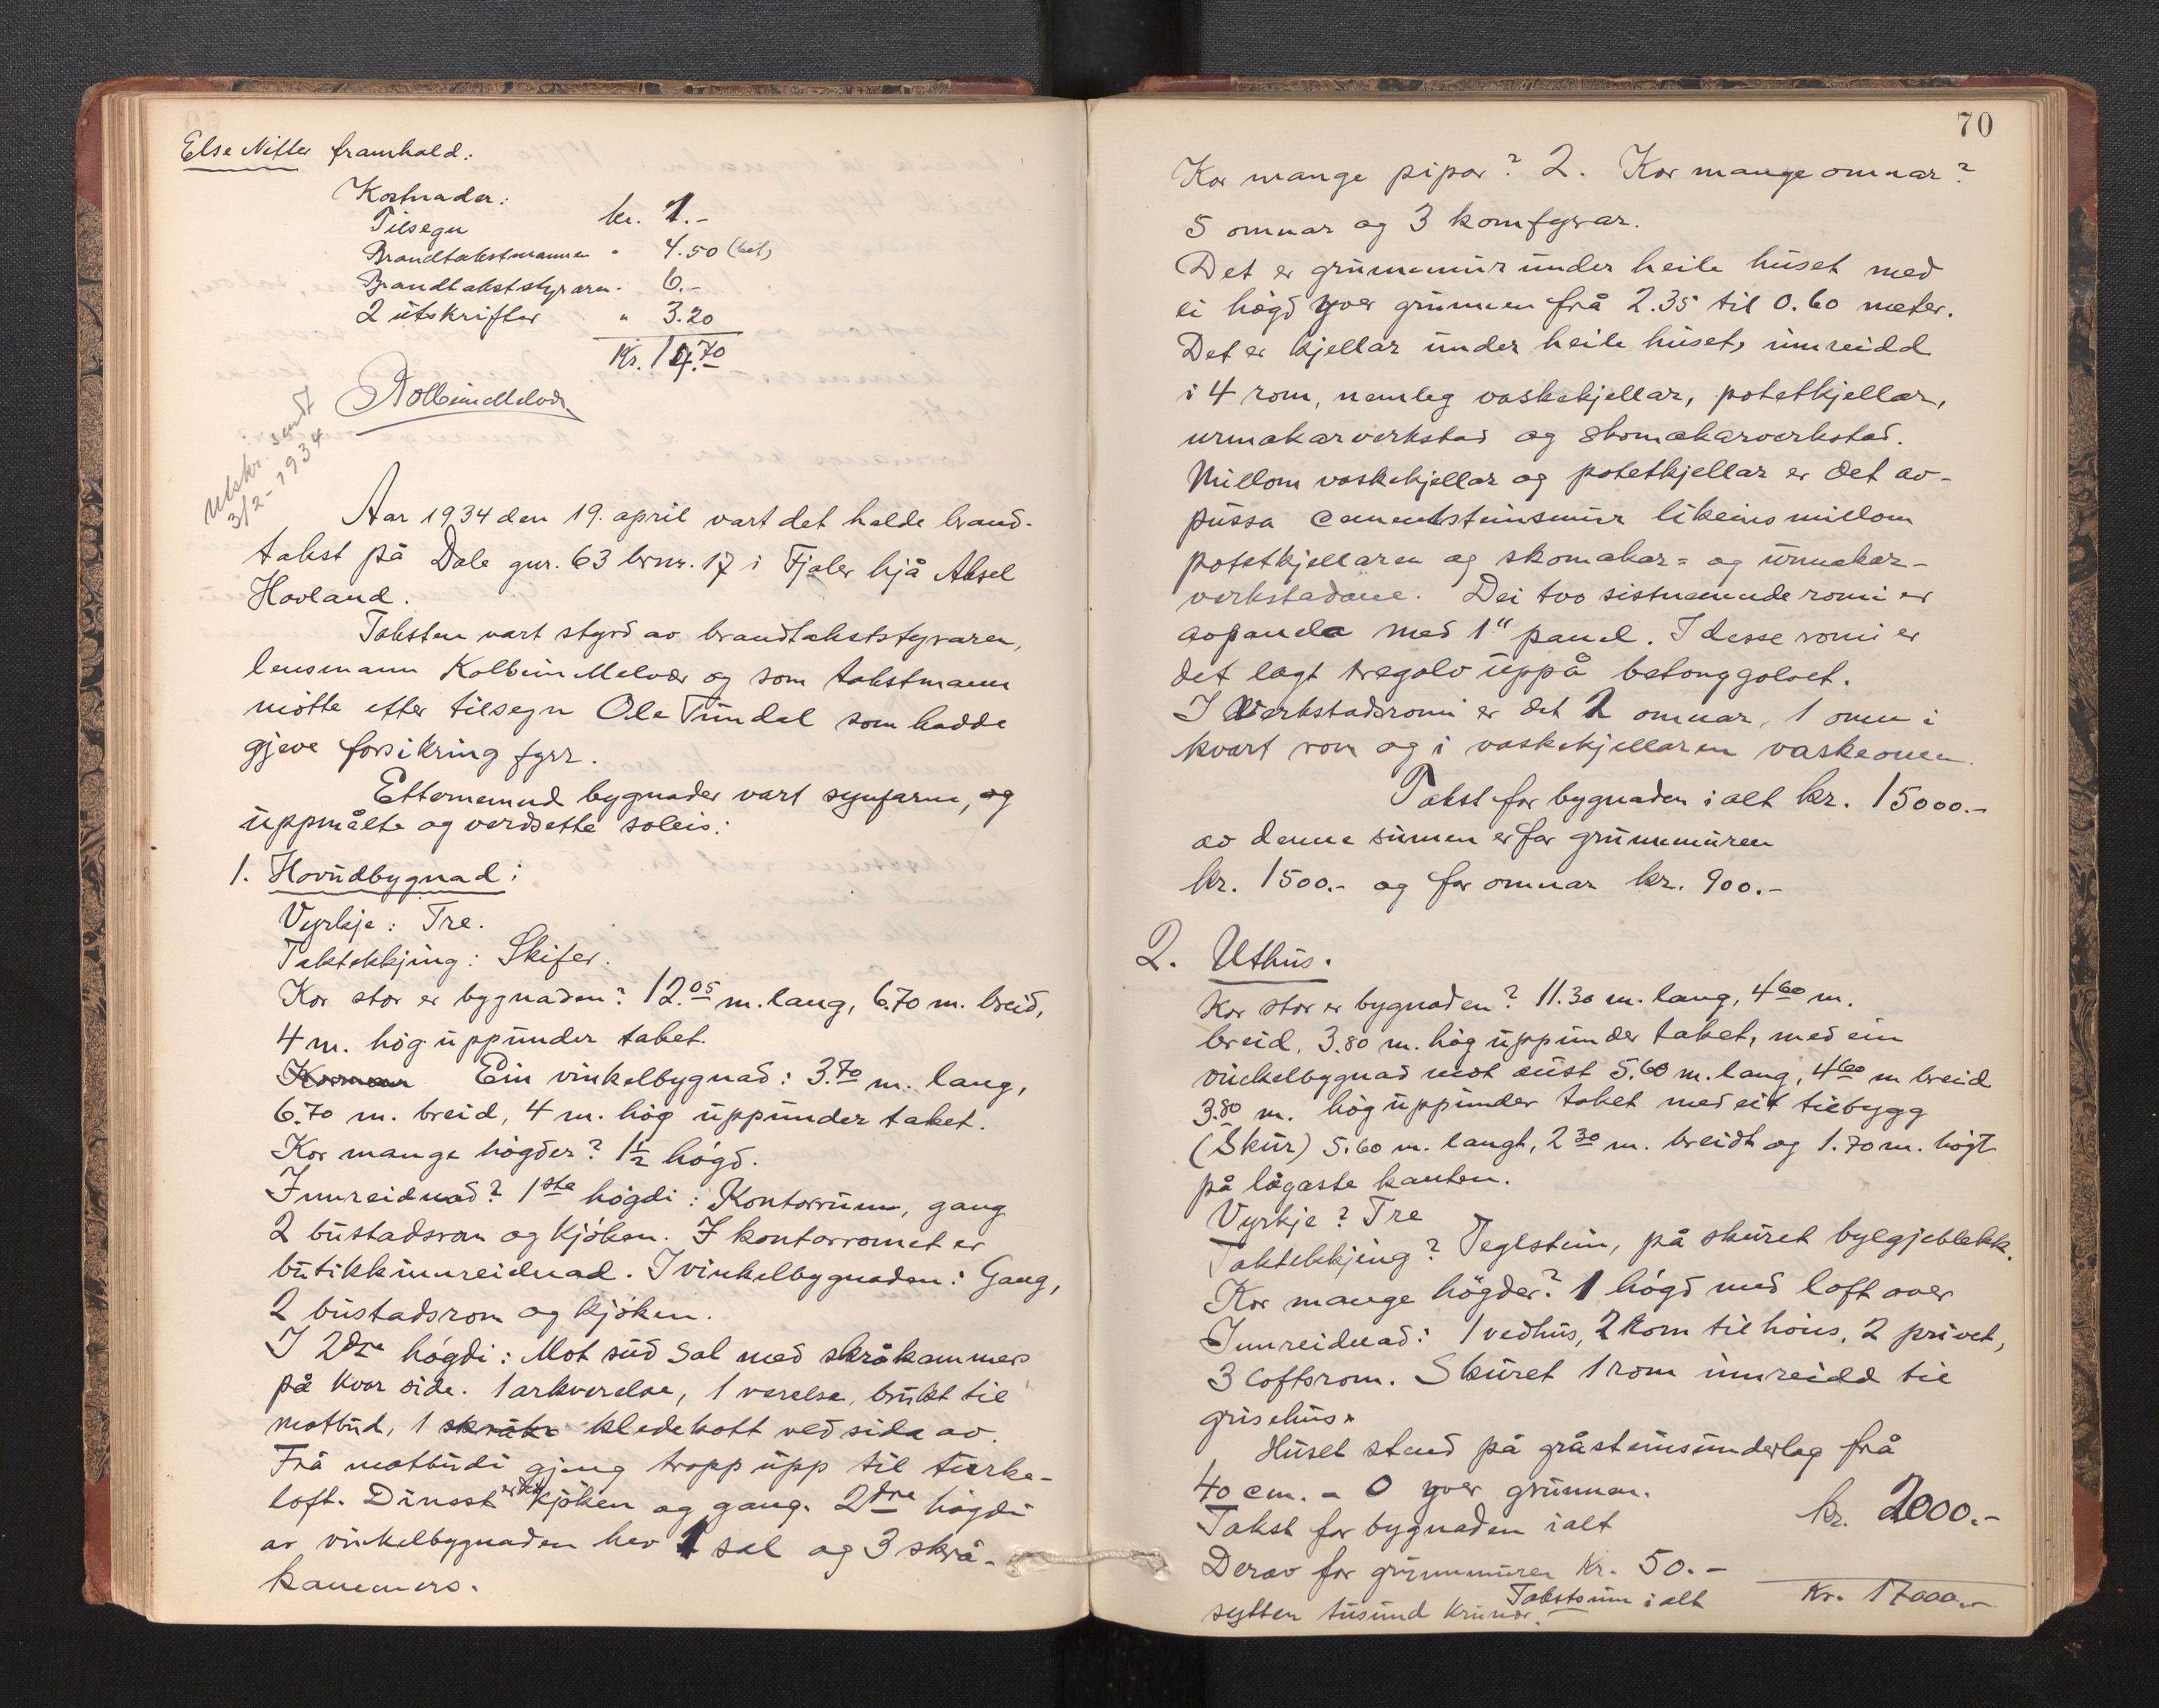 Else Nitter framhald:
Kostnader:
Tilsegn kr. 1.-
Brandtakstmannen " 4.50 (bet)
Brandtakststyraren " 6.-
2 utskrifter " 3.20
Kr. 14.70
Kolbein Melvær
Utskr. sendt
3/2-1934
Aar 1934 den 19. april vart det halde brand-
takst på Dale gnr. 63 brnr. 17 i Fjaler hjå Aksel
Hovland.
Taksten vart styrd av brandtakststyraren,
lensmann Kolbein Melvær og som takstmann
møtte etter tilsegn Ole Tundal som hadde
gjeve forsikring fyrr.
Etternemnd bygnader vart synfarne, og
uppmålte og verdsette soleis:
1. Hovudbygnad:
Vyrkje: Tre.
Taktekkjing: Skifer.
Kor stor er bygnaden? 12.05 m. lang, 6.70 m. breid,
4 m. høg uppunder taket.
Ein vinkelbygnad: 3.70 m. lang,
6.70 m. breid, 4 m. høg uppunder taket.
Kor mange høgder? 1½ høgd.
Innreidnad? 1ste høgdi: Kontorrum, gang
2 bustadsrom og kjøken. I kontorromet er
butikkinnreidnad. I vinkelbygnaden: Gang,
2 bustadsrom og kjøken.
I 2dre høgdi: Mot sud sal med skråkammers
på kvar side. 1 arkverelse, 1 verelse, brukt til
matbud, 1 skråk. kledekott ved sida av.
Frå matbudi gjeng trapp upp til turke-
loft. Dinæst er det kjøken og gang. 2dre høgdi
av vinkelbygnaden hev 1 sal og 3 skrå-
kammers.
70
Kor mange pipor? 2. Kor mange omnar?
5 omnar og 3 komfyrar.
Det er grunnmur under heile huset med
ei høgd yver grunnen frå 2.35 til 0.60 meter.
Det er kjellar under heile huset, innreidd
i 4 rom, nemleg vaskekjellar, potetkjellar,
urmakarverkstad og skomakarverkstad.
Millom vaskekjellar og potetkjellar er det av-
pussa cementsteinsmur likeins millom
potetkjellaren og skomakar- og urmakar-
verkstadane. Dei tvo sistnemnde romi er
avpanela med 1" panel. I desse romi er
det lagt tregolv uppå betonggolvet.
I verkstadsromi er det 2 omnar, 1 omn i
kvart rom og i vaskekjellaren vaskeomn.
Takst for bygnaden i alt kr. 15000.-
av denne sumen er for grunnmuren
kr. 1500.- og for omnar kr. 900.-
2. Uthus.
Kor stor er bygnaden? 11.30 m. lang, 4.60 m.
breid, 3.80 m. høg uppunder taket, med ein
vinkelbygnad mot aust 5.60 m. lang, 4.60 m breid
3.80 m. høg uppunder taket med eit tilbygg
(Skur) 5.60 m. langt, 2.30 m. breidt og 1.70 m. høgt
på lågaste kanten.
Vyrkje? Tre
Taktekkjing? Teglstein, på skuret bylgjeblekk.
Kor mange høgder? 1 høgd med loft over
Innreidnad: 1 vedhus, 2 rom til høns, 2 privet,
3 loftsrom. Skuret 1 rom innreidd til
grisehus.
Huset stend på gråsteinsunderlag frå
40 cm. - 0 yver grunnen.
Takst for bygnaden ialt kr. 2000.-
Derav for grunnmuren kr. 50.-
Takstsum ialt Kr. 17000.-
sytten tusund krunor.